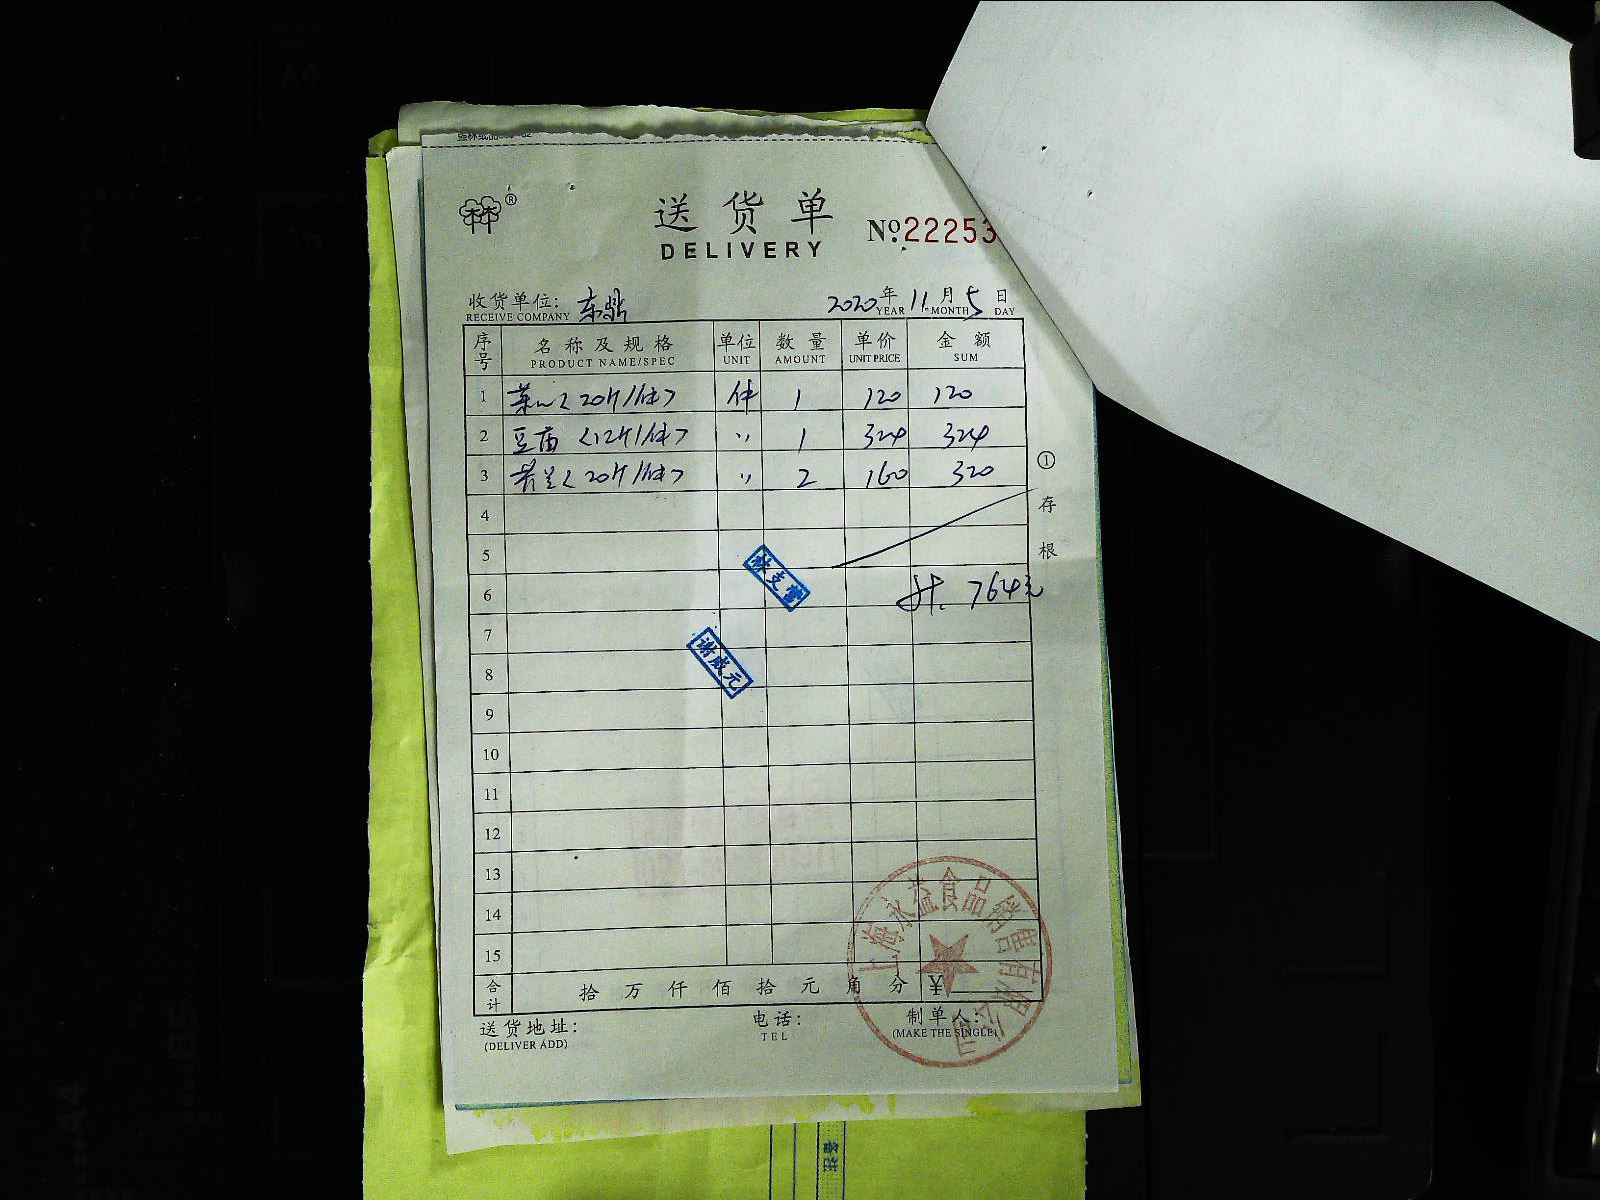 ®
送货单
DELIVERY
№:22253
收货单位: 东鼎 2020年11月5日
RECEIVE COMPANY YEAR MONTH DAY
序号 名称及规格 单位 数量 单价 金额
PRODUCT NAME/SPEC UNIT AMOUNT UNIT PRICE SUM
1 菜心<20斤/件> 件 1 120 120
2 豆苗<12斤/件> 〃 1 324 324
3 芥兰<20斤/件> 〃 2 160 320
4
5
6 计. 764元
7
8
9
10
11
12
13
14
15
①存根
谢成元
上海永益食品销售有限公司
合计 拾万仟佰拾元角分 ¥
送货地址: 电话: 制单人:
(DELIVER ADD) TEL (MAKE THE SINGLE)
备注